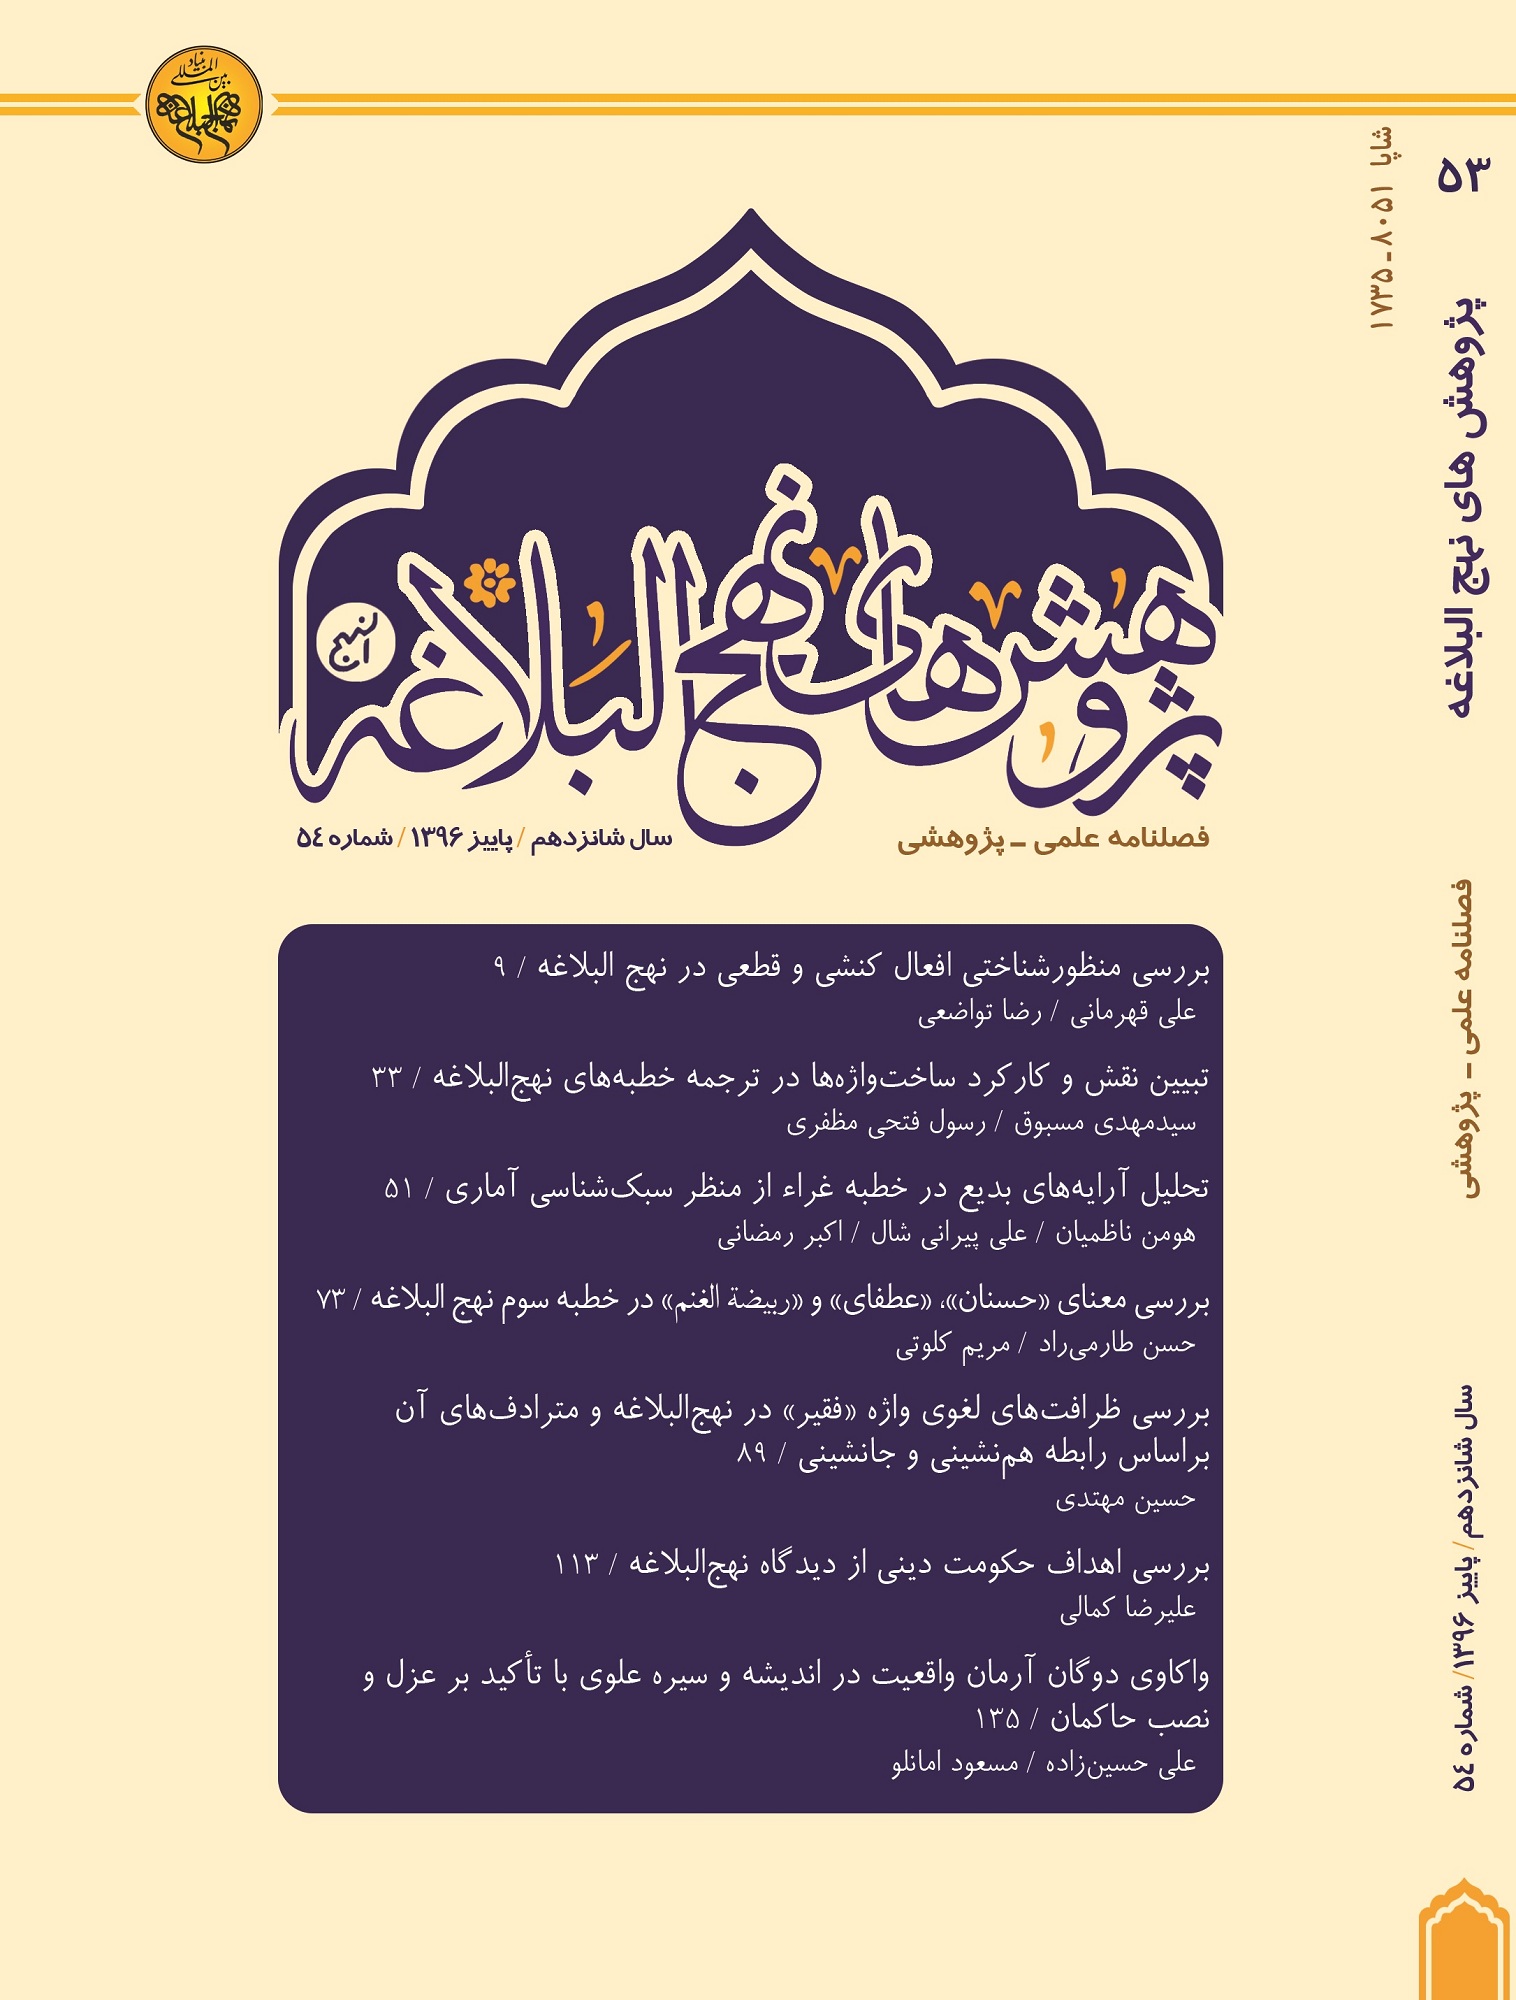 بنیاد
بین‌المللی
نهج‌البلاغه
شاپا ۸۰۵۱ ـ ۱۷۳۵
پژوهش‌های نهج البلاغه
نهج
فصلنامه علمی ـ پژوهشی
سال شانزدهم / پاییز ۱۳۹۶ / شماره ۵۴
بررسی منظورشناختی افعال کنشی و قطعی در نهج البلاغه / ۹
علی قهرمانی / رضا تواضعی
تبیین نقش و کارکرد ساخت‌واژه‌ها در ترجمه خطبه‌های نهج‌البلاغه / ۳۳
سیدمهدی مسبوق / رسول فتحی مظفری
تحلیل آرایه‌های بدیع در خطبه غراء از منظر سبک‌شناسی آماری / ۵۱
هومن ناظمیان / علی پیرانی شال / اکبر رمضانی
بررسی معنای «حسنان»، «عطفای» و «ربیضة الغنم» در خطبه سوم نهج البلاغه / ۷۳
حسن طارمی‌راد / مریم کلوتی
بررسی ظرافت‌های لغوی واژه «فقیر» در نهج‌البلاغه و مترادف‌های آن
براساس رابطه هم‌نشینی و جانشینی / ۸۹
حسین مهتدی
بررسی اهداف حکومت دینی از دیدگاه نهج‌البلاغه / ۱۱۳
علیرضا کمالی
واکاوی دوگان آرمان واقعیت در اندیشه و سیره علوی با تأکید بر عزل و
نصب حاکمان / ۱۳۵
علی حسین‌زاده / مسعود امانلو
۵۳
پژوهش های نهج البلاغه
فصلنامه علمی ـ پژوهشی
سال شانزدهم/ پاییز ۱۳۹۶/ شماره ۵۴